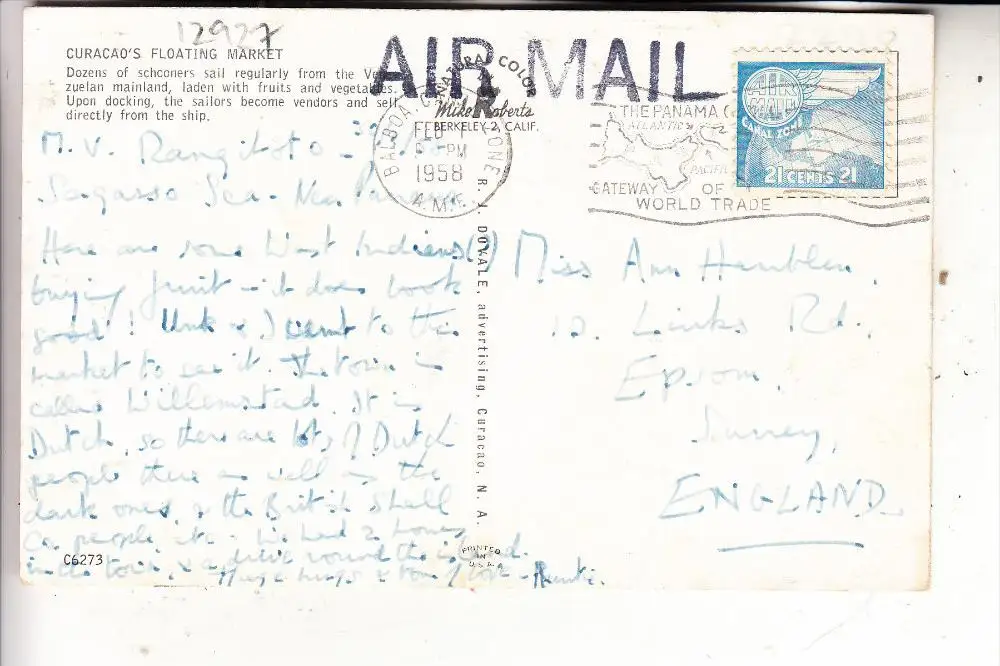 12927
CURACAO'S FLOATING MARKET
Dozens of schooners sail regularly from the Ve-
zuelan mainland, laden with fruits and vegetables.
Upon docking, the sailors become vendors and sell
directly from the ship.
AIR MAIL
NATURAL COLOR
Mike Roberts
BERKELEY-2, CALIF.
BALBOA C ZONE
FEB
PM
1958
THE PANAMA C
ATLANTIC
PACIFIC
GATEWAY OF
WORLD TRADE
AIR MAIL
CANAL ZONE
21 CENTS 21
M.V. Rangitoto
Sargasso Sea. Nr.
Here are some West Indians(?)
buying fruit - it does look
good! Unk & I went to the
market to see it. The town is
called Willemstad. It is
Dutch, so there are lots of Dutch
people there as well as the
dark ones, & the British Shell
Co people, etc. We had 2 hours
in the town, & a drive round the island.
Huge hugs & tons of love - Auntie.
C6273
R. J. DOVALE, advertising, Curacao, N. A.
PRINTED
IN
U.S.A.
Miss Ann Hamblen,
10. Links Rd.,
Epsom,
Surrey,
ENGLAND.